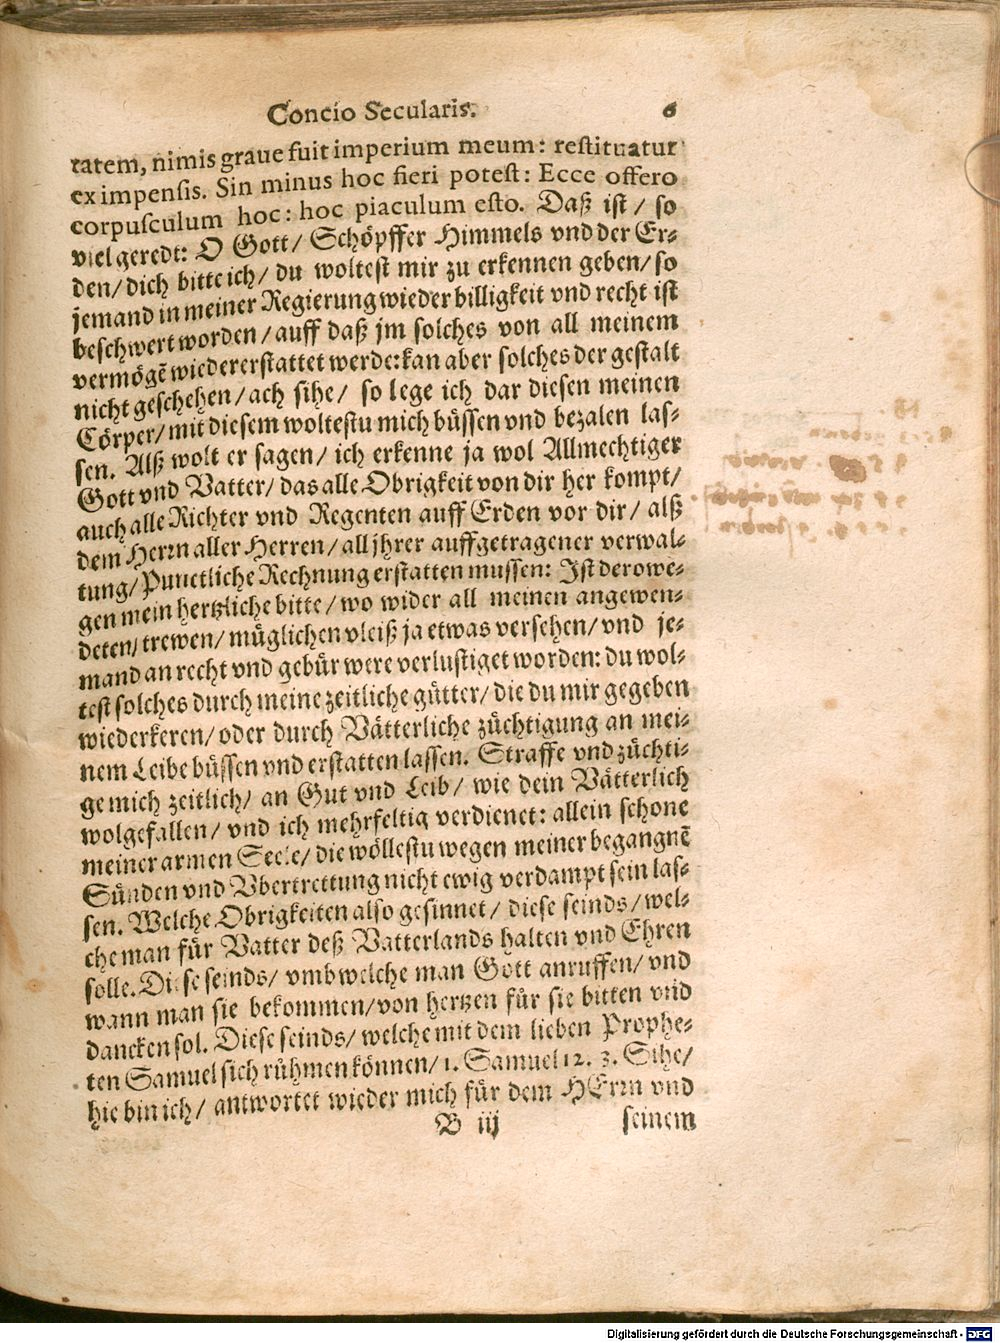 Concio Secularis. 6
tatem, nimis graue fuit imperium meum: restituatur
ex impensis. Sin minus hoc fieri potest: Ecce offero
corpusculum hoc: hoc piaculum esto. Daß ist / so
viel geredt: O Gott / Schöpffer Himmels vnd der Er-
den / dich bitte ich / du woltest mir zu erkennen geben / so
jemand in meiner Regierung wieder billigkeit vnd recht ist
beschwert worden / auff daß jm solches von all meinem
vermögẽ wiedererstattet werde: kan aber solches der gestalt
nicht geschehen / ach sihe / so lege ich dar diesen meinen
Cörper / mit diesem woltestu mich büssen vnd bezalen las-
sen. Alß wolt er sagen / ich erkenne ja wol Allmechtiger
Gott vnd Vatter / das alle Obrigkeit von dir her kompt /
auch alle Richter vnd Regenten auff Erden vor dir / alß
dem Herrn aller Herren / all jhrer auffgetragener verwal-
tung / Punctliche Rechnung erstatten mussen: Ist derowe-
gen mein hertzliche bitte / wo wider all meinen angewen-
deten / trewen / müglichen vleiß ja etwas versehen / vnd je-
mand an recht vnd gebür were verlustiget worden: du wol-
test solches durch meine zeitliche gütter / die du mir gegeben
wiederkeren / oder durch Vätterliche züchtigung an mei-
nem Leibe büssen vnd erstatten lassen. Straffe vnd züchti-
ge mich zeitlich / an Gut vnd Leib / wie dein Vätterlich
wolgefallen / vnd ich mehrfeltig verdienet: allein schone
meiner armen Seele / die wöllestu wegen meiner begangnẽ
Sünden vnd Vbertrettung nicht ewig verdampt sein las-
sen. Welche Obrigkeiten also gesinnet / diese seinds / wel-
che man für Vatter deß Vatterlands halten vnd Ehren
solle. Diese seinds / vmb welche man Gott anruffen / vnd
wann man sie bekommen / von hertzen für sie bitten vnd
dancken sol. Diese seinds / welche mit dem lieben Prophe-
ten Samuel sich rühmen können / 1. Samuel 12. 3. Sihe /
hie bin ich / antwortet wieder mich für dem HErrn vnd
B iij seinem
Digitalisierung gefördert durch die Deutsche Forschungsgemeinschaft - DFG